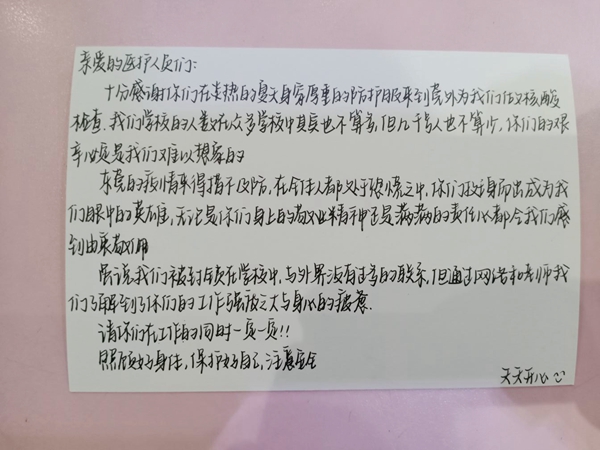 亲爱的医护人员们:
十分感谢你们在炎热的夏天身穿厚重的防护服来到莞外为我们做核酸
检查.我们学校的人数在众多学校中其实也不算多,但几千号人也不算少,你们的艰
辛必定是我们难以想象的
东莞的疫情来得措不及防,在令人都处于恐慌之中,你们挺身而出成为我
们眼中的英雄,无论是你们身上的敬业精神还是满满的责任心都令我们感
到由衷敬佩
虽说我们被封锁在学校中,与外界没有过多的联系,但通过网络和老师我
们了解到了你们的工作强度之大与身心的疲惫.
请你们在工作的同时一定一定!!
照顾好身体,保护好自己,注意安全
天天开心